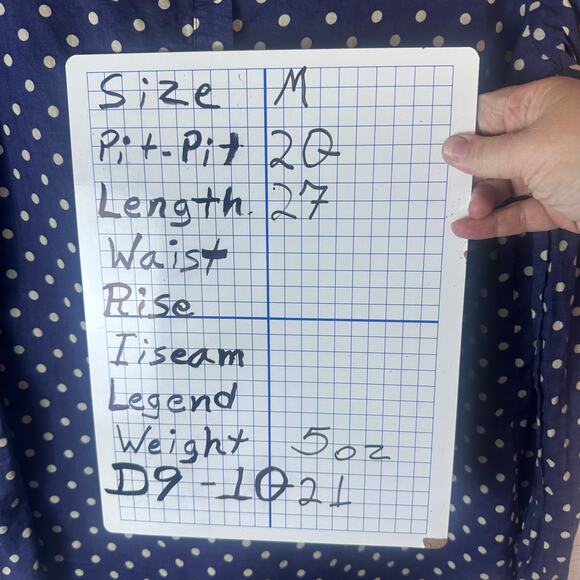 Size M
Pit-Pit 20
Length. 27
Waist
Rise
Iiseam
Legend
Weight 5oz
D9-10-21